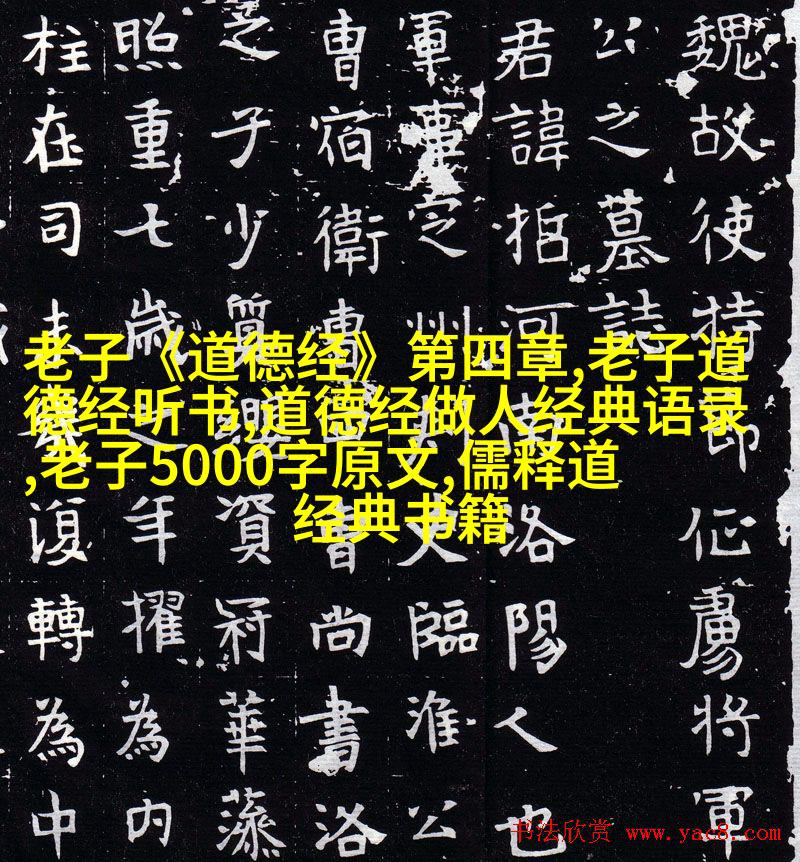 魏故使持節征虜將軍
公之墓誌
君諱河南洛陽人也
軍事定州刺史臨淮公
曹宿衛曹書尚書洛
之子少質纓資冠華藻
照重七歲之年擢為內
柱在司復轉為中
老子《道德经》第四章,老子道
德经听书,道德经做人经典语录
,老子5000字原文,儒释道
经典书籍
书法欣赏 www.yac8.com